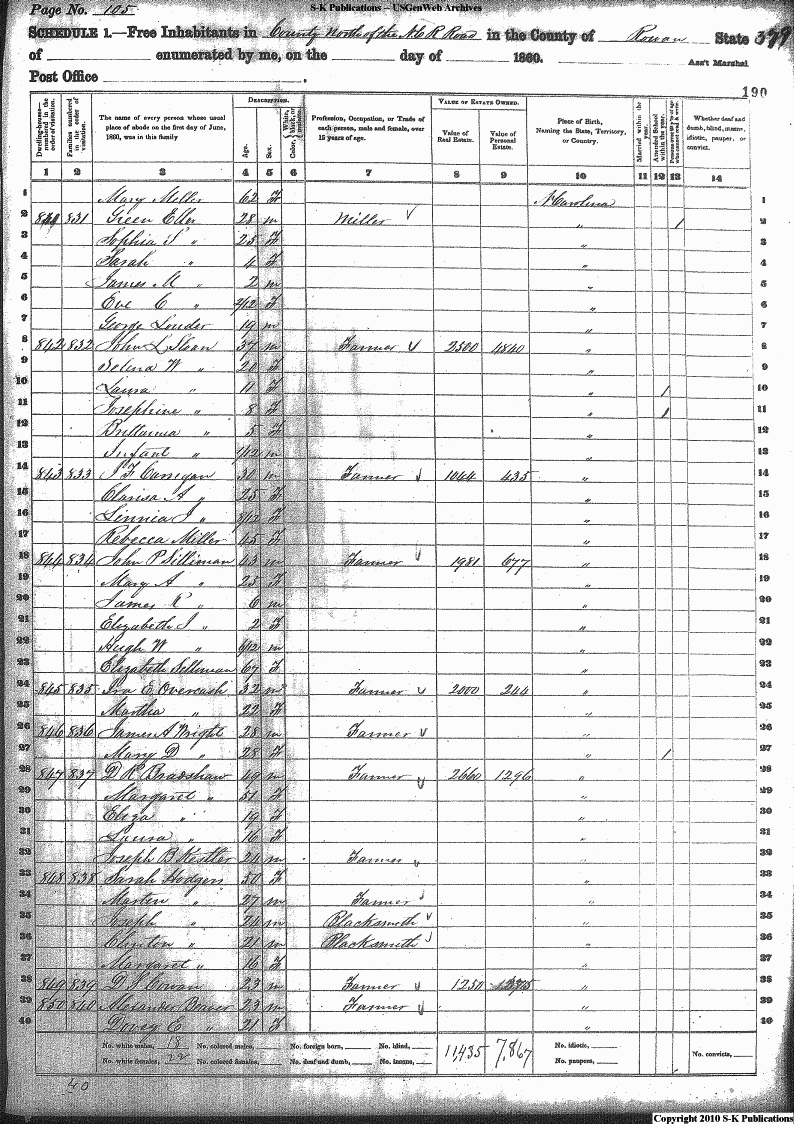 Page No. 105
S-K Publications – USGenWeb Archives
SCHEDULE 1.—Free Inhabitants in County North of the N C R Road in the County of Rowan State 379
of enumerated by me, on the day of 1860. Ass't Marshal
Post Office
190
Dwelling-houses—numbered in the order of visitation. Families numbered in the order of visitation. The name of every person whose usual place of abode on the first day of June, 1860, was in this family Description. Age. Sex. Color, White, black, or mulatto. Profession, Occupation, or Trade of each person, male and female, over 15 years of age. Value of Estate Owned. Value of Real Estate. Value of Personal Estate. Place of Birth, Naming the State, Territory, or Country. Married within the year. Attended School within the year. Persons over 20 y'rs of age who cannot read & write. Whether deaf and dumb, blind, insane, idiotic, pauper, or convict.
1 2 3 4 5 6 7 8 9 10 11 12 13 14
1 Mary Miller 62 F N Carolina 1
2 831 Green Eller 28 m Miller " / 2
3 Sophia S " 25 F " 3
4 Sarah " 4 F " 4
5 James M " 2 m " 5
6 Eve C " 2/12 F " 6
7 George Louder 19 m " 7
8 842 832 John L Sloan 37 m Farmer 2500 4840 " 8
9 Selina W " 20 F " 9
10 Laura " 11 F " / 10
11 Josephine " 8 F " / 11
12 Brittainia " 5 F " 12
13 Infant " 1/12 m " 13
14 843 833 J F Carrigan 30 m Farmer 1044 435 " 14
15 Clarisa A " 25 F " 15
16 Linnia J " 3/12 F " 16
17 Rebecca Miller 45 F " 17
18 844 834 John P Silliman 43 m Farmer 1981 677 " 18
19 Mary A " 25 F " 19
20 James R " 6 m " 20
21 Elizabeth J " 2 F " 21
22 Hugh W " 6/12 m " 22
23 Elizabeth Silliman 67 F " 23
24 845 835 Ira E Overcash 32 m Farmer 2000 244 " 24
25 Martha " 22 F " 25
26 846 836 James A Wright 28 m Farmer " 26
27 Mary D " 28 F " / 27
28 847 837 D R Bradshaw 49 m Farmer 2660 1296 " 28
29 Margaret " 51 F " 29
30 Eliza " 19 F " 30
31 Laura " 16 F " 31
32 Joseph B Kestler 24 m Farmer " 32
33 848 838 Sarah Hodgens 50 F " 33
34 Marten " 27 m Farmer " 34
35 Joseph " 24 m Blacksmith " 35
36 Clinton " 21 m Blacksmith " 36
37 Margaret " 16 F " 37
38 849 839 D J Cowan 23 m Farmer 1250 " 38
39 850 840 Alexander Braver 23 m Farmer " 39
40 Dovey E " 21 F " 40
No. white males, 18 No. colored males, No. foreign born, No. blind, 11,435 7,867 No. idiotic,
No. white females, 22 No. colored females, No. deaf and dumb, No. insane, No. paupers, No. convicts,
40
Copyright 2010 S-K Publications